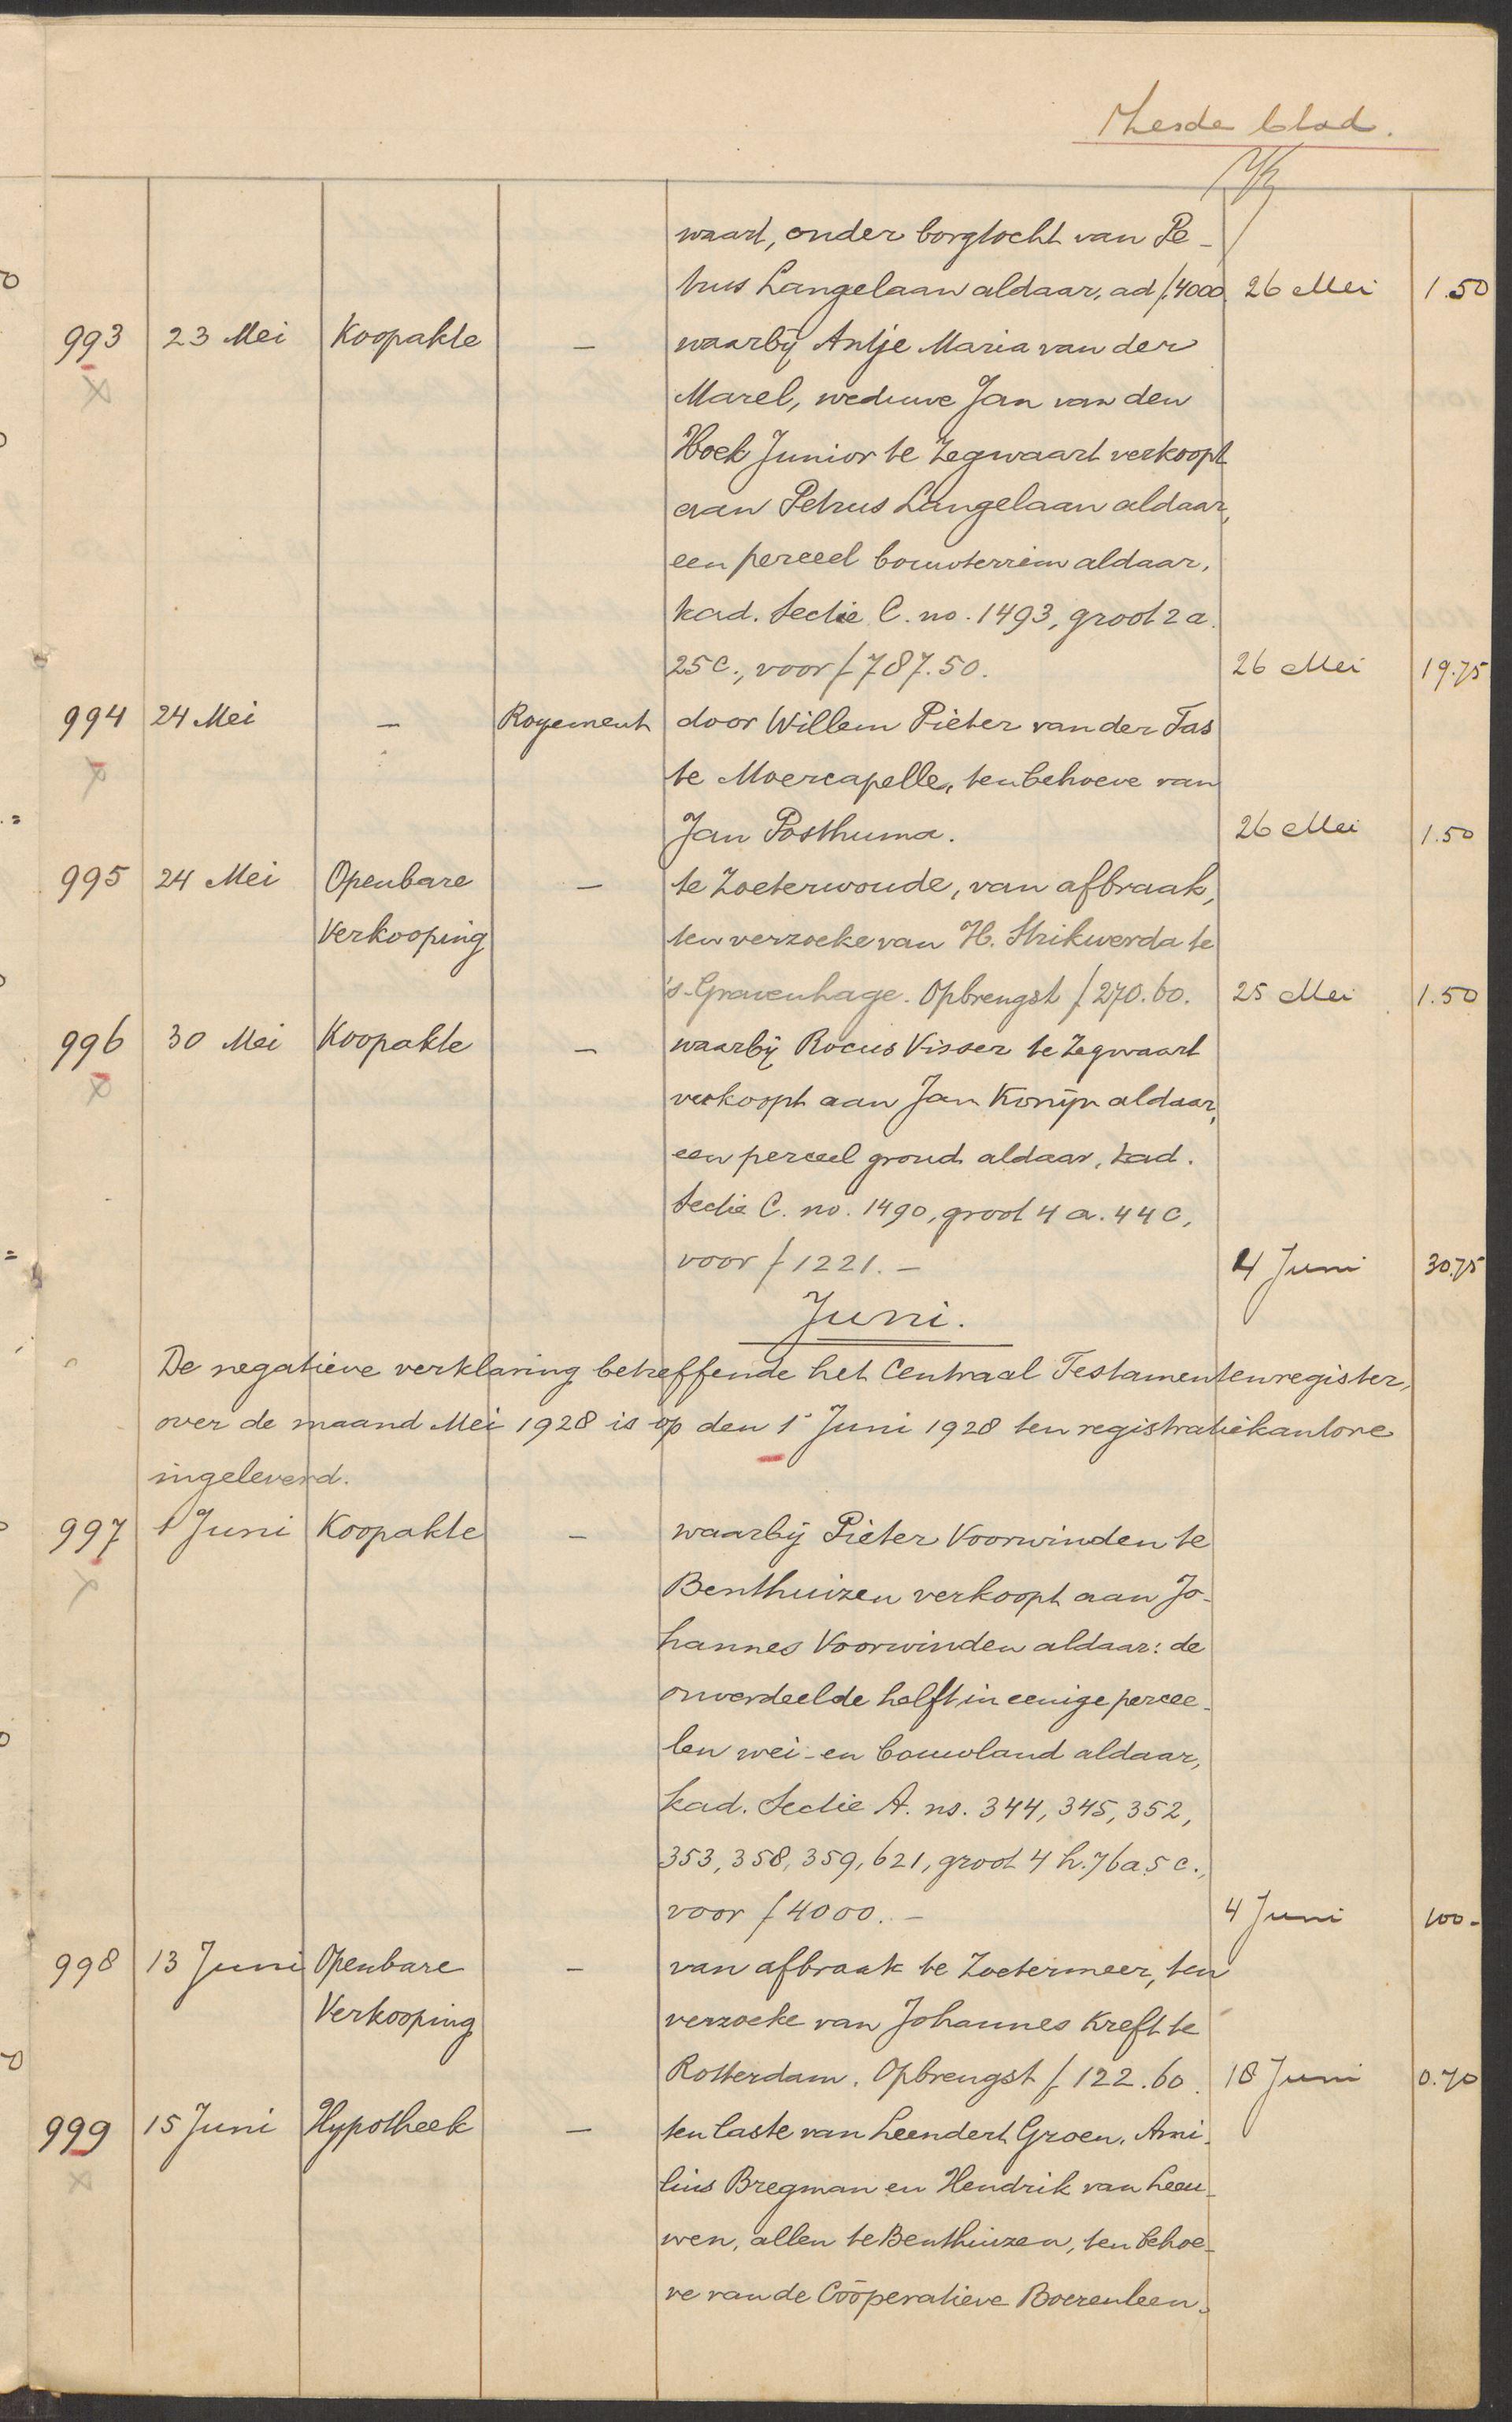 blad.
waart, onder borgtocht van Pe-
trus Langelaan aldaar, ad ƒ4000 26 Mei 1.50
993 23 Mei Koopakte — waarbij Antje Maria van der
Marel, weduwe Jan van den
Hoek Junior te Zegwaart verkoopt
aan Petrus Langelaan aldaar,
een perceel bouwterrein aldaar,
kad. Sectie C. no. 1493, groot 2 a.
25 c., voor ƒ 787.50. 26 Mei 19.75
994 24 Mei — Royement door Willem Pieter van der Tas
te Moercapelle, ten behoeve van
Jan Posthuma. 26 Mei 1.50
995 24 Mei Openbare — te Zoeterwoude, van afbraak,
Verkooping ten verzoeke van H. Strikwerda te
's-Gravenhage. Opbrengst ƒ 270.60. 25 Mei 1.50
996 30 Mei Koopakte — waarbij Rocus Visser te Zegwaart
verkoopt aan Jan Konijn aldaar,
een perceel grond aldaar, kad.
Sectie C. no. 1490, groot 4 a. 44 c,
voor ƒ 1221.— 4 Juni 30.75
Juni.
De negatieve verklaring betreffende het Centraal Testamentenregister,
over de maand Mei 1928 is op den 1 Juni 1928 ten registratiekantore
ingeleverd.
997 1 Juni Koopakte — waarbij Pieter Voorwinden te
Benthuizen verkoopt aan Jo-
hannes Voorwinden aldaar: de
onverdeelde helft in eenige percee-
len wei- en bouwland aldaar,
kad. Sectie A. ns. 344, 345, 352,
353, 358, 359, 621, groot 4 h. 76 a 5 c.,
voor ƒ 4000.— 4 Juni 100-
998 13 Juni Openbare — van afbraak te Zoetermeer, ten
Verkooping verzoeke van Johannes Kreft te
Rotterdam. Opbrengst ƒ 122.60. 18 Juni 0.70
999 15 Juni Hypotheek — ten laste van Leendert Groen, Ami-
lius Bregman en Hendrik van Leeu-
wen, allen te Benthuizen, ten behoe-
ve van de Coöperatieve Boerenleen-